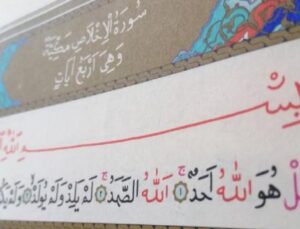 سُورَةُ الْإِخْلَاصِ مَكِّيَّةٌ
وَهِيَ اَرْبَعُ اٰيَاتٍ
بِسْمِ اللّٰهِ
هُوَ اللّٰهُ اَحَدٌۚ ﴿١﴾ اَللّٰهُ الصَّمَدُۚ ﴿٢﴾ لَمْ يَلِدْ وَلَمْ يُولَدْۙ ﴿٣﴾ وَلَمْ